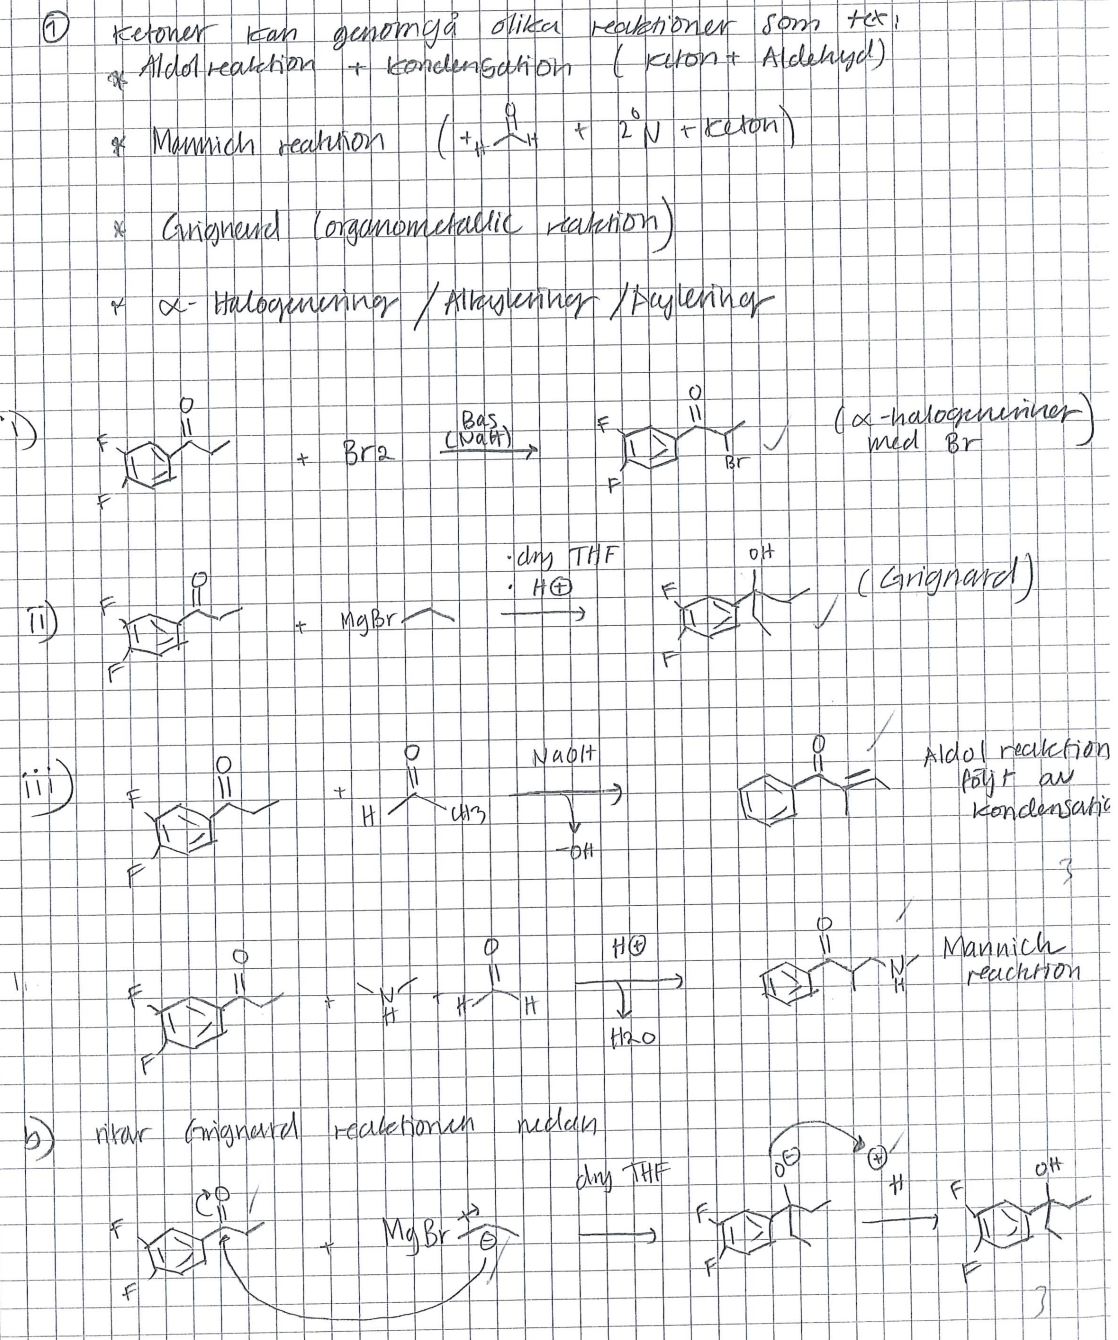 ① Ketoner kan genomgå olika reaktioner som tex:
* Aldolreaktion + kondensation (keton + Aldehyd)
* Mannich reaktion (+ H O H + 2° N + keton)
* Grignard (organometallic reaktion)
* α-Halogenering / Alkylering / Acylering
i) F F O + Br2 Bas (NaH) F F O Br (α-halogenering) med Br
ii) F F O + MgBr ·dry THF · H⊕ F F OH (Grignard)
iii) F F O + H O CH3 NaOH -OH O Aldol reaktion
följt av
kondensatio
3
F F O + N H + H O H H⊕ H2O O N H Mannich
reacktion
b) ritar Grignard reaktionen nedan
F F O + MgBr ⊖ dry THF F F O⊖ ⊕ H F F OH
3